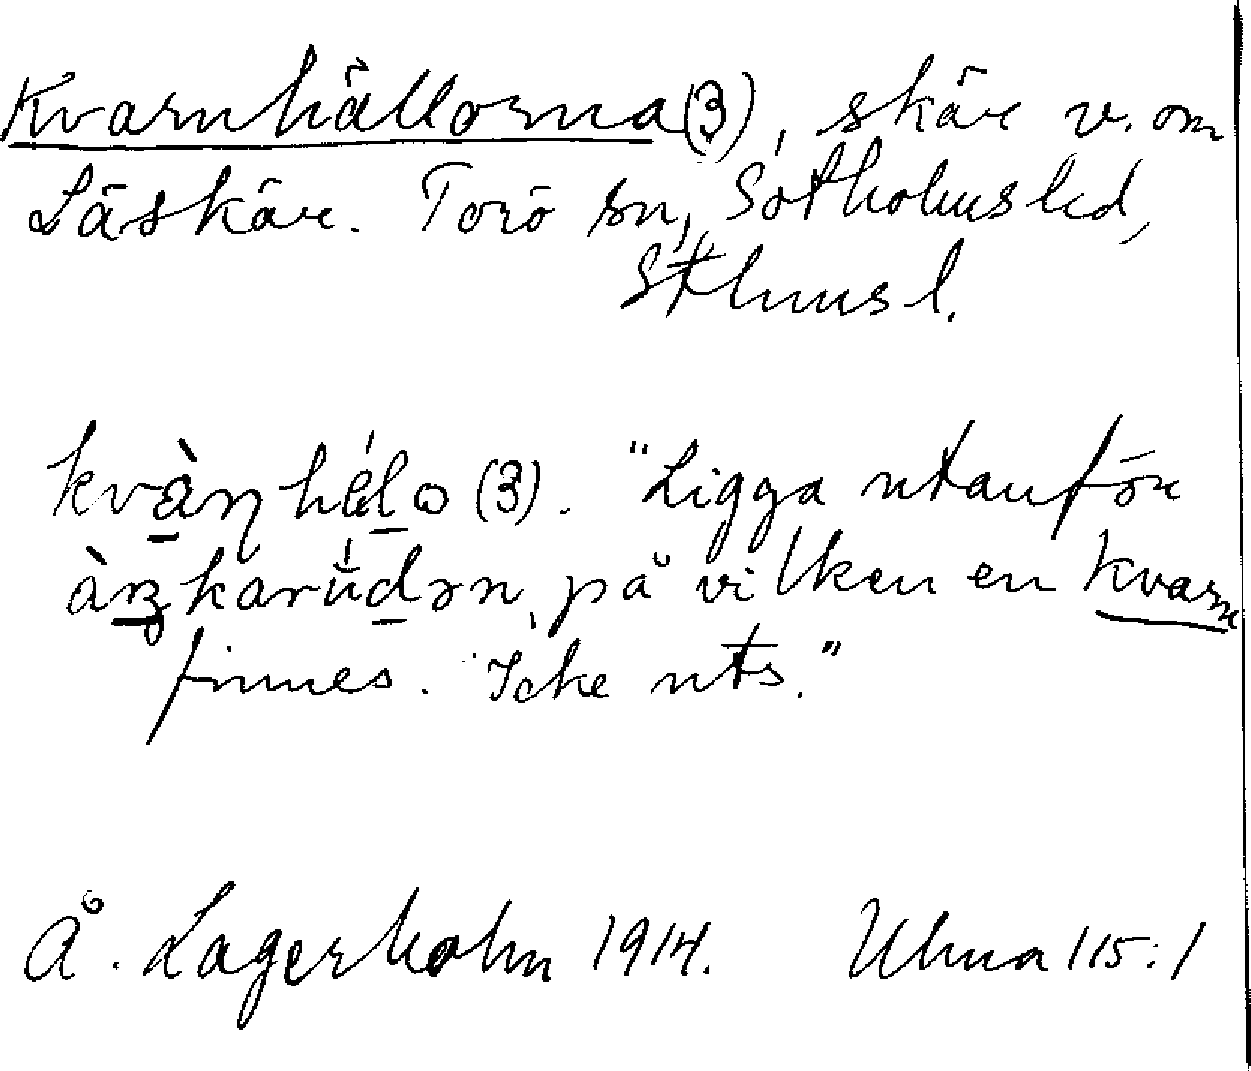 Kvarnhällorna (3), skär v. om
Läskär. Torö sn, Sotholms hd,
Sthlms l.
kvàn̠hél̠o (3). "Ligga utanför
på vilken en kvarn
finnes. Icke uts."
Å. Lagerholm 1914. Uhma 115:1